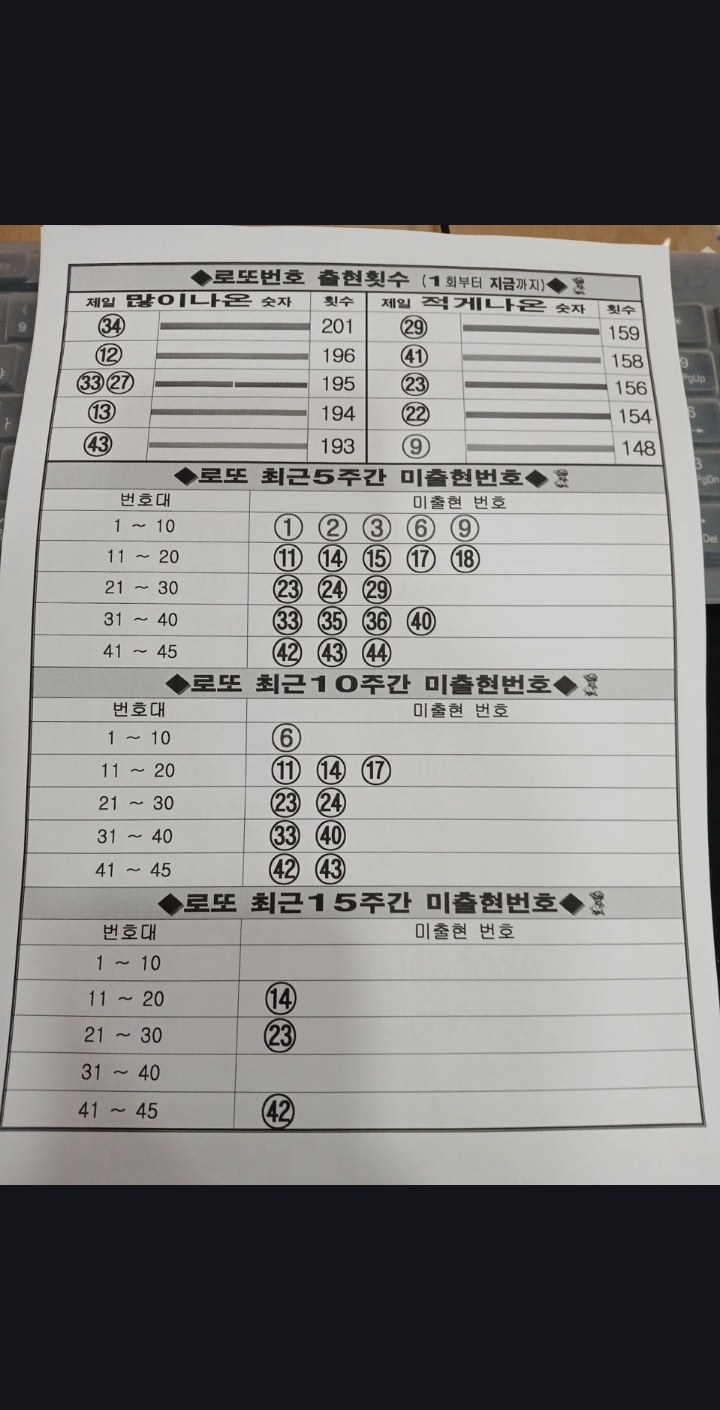 ◆로또번호 출현횟수 (1회부터 지금까지)◆
제일 많이나온 숫자 횟수 제일 적게나온 숫자 횟수
34 201 29 159
12 196 41 158
33 27 195 23 156
13 194 22 154
43 193 9 148
◆로또 최근5주간 미출현번호◆
번호대 미출현 번호
1 ~ 10 1 2 3 6 9
11 ~ 20 11 14 15 17 18
21 ~ 30 23 24 29
31 ~ 40 33 35 36 40
41 ~ 45 42 43 44
◆로또 최근10주간 미출현번호◆
번호대 미출현 번호
1 ~ 10 6
11 ~ 20 11 14 17
21 ~ 30 23 24
31 ~ 40 33 40
41 ~ 45 42 43
◆로또 최근15주간 미출현번호◆
번호대 미출현 번호
1 ~ 10
11 ~ 20 14
21 ~ 30 23
31 ~ 40
41 ~ 45 42
9
PgUp
6
3
PgDn
Del